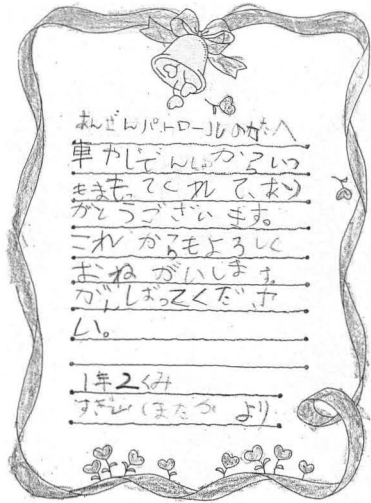 あんぜんパトロールのかたへ
車やじでんしゃからいつ
もまもってくれて、あり
がとうございます。
これからもよろしく
おねがいします。
がんばってくださ
い。
1年2くみ
すぎ山 より